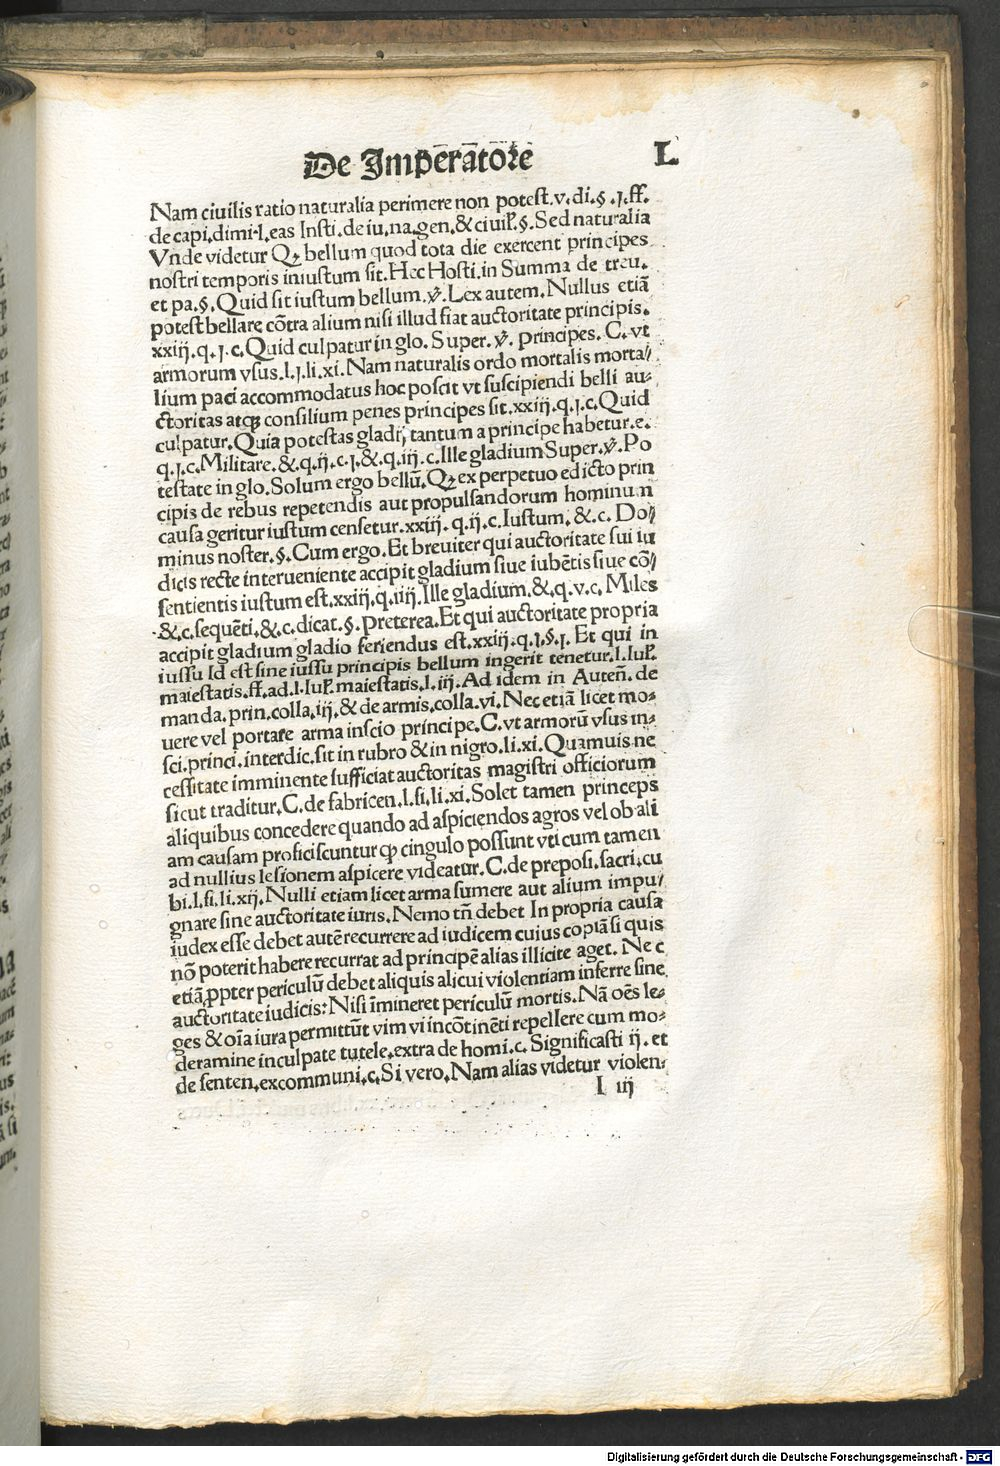 De Imperatore L
Nam ciuilis ratio naturalia perimere non potest.v.di.§.j.ff.
de capi.dimi.l.eas Insti.de iu.na.gen.&ciuil̕.§.Sed naturalia
Vnde videtur Qꝫ bellum quod tota die exercent principes
nostri temporis iniustum sit.Hec Hosti.in Summa de treu.
et pa.§.Quid sit iustum bellum.ꝟ.Lex autem.Nullus etiā
potest bellare cōtra alium nisi illud fiat auctoritate principis.
xxiij.q.j.c.Quid culpatur in glo.Super.ꝟ.principes.C.vt
armorum vsus.l.j.li.xi.Nam naturalis ordo mortalis morta//
lium paci accommodatus hoc poscit vt suscipiendi belli au-
ctoritas atqꝫ consilium penes principes sit.xxiij.q.j.c.Quid
culpatur.Quia potestas gladij tantum a principe habetur.e.
q.j.c.Militare.&.q.ij.c.j.&.q.iij.c.Ille gladium Super.ꝟ.Po
testate in glo.Solum ergo bellū.Qꝫ ex perpetuo edicto prin
cipis de rebus repetendis aut propulsandorum hominum
causa geritur iustum censetur.xxiij.q.ij.c.Iustum.&.c.Do//
minus noster.§.Cum ergo.Et breuiter qui auctoritate sui iu
dicis recte interueniente accipit gladium siue iubētis siue cō//
sentientis iustum est.xxiij.q.iiij.Ille gladium.&.q.v.c.Miles
.&.c.sequēti.&.c.dicat.§.preterea.Et qui auctoritate propria
accipit gladium gladio feriendus est.xxiij.q.j.§.j.Et qui in
iussu Id est sine iussu principis bellum ingerit tenetur.l.Iul̕.
maiestatis.ff.ad.l.Iul̕.maiestatis.l.iij.Ad idem in Auten̄.de
manda.prin.colla.iij.& de armis.colla.vi.Nec etiā licet mo-
uere vel portare arma inscio principe.C.vt armorū vsus in-
sci.princi.interdic.sit in rubro & in nigro.li.xi.Quamuis ne
cessitate imminente sufficiat auctoritas magistri officiorum
sicut traditur.C.de fabricen.l.fi.li.xi.Solet tamen princeps
aliquibus concedere quando ad aspiciendos agros vel ob ali
am causam proficiscuntur ꝙ cingulo possunt vti cum tamen
ad nullius lesionem aspicere videatur.C.de preposi.sacri.cu
bi.l.fi.li.xij.Nulli etiam licet arma sumere aut alium impu//
gnare sine auctoritate iuris.Nemo tn̄ debet In propria causa
iudex esse debet autē recurrere ad iudicem cuius copiā si quis
nō poterit habere recurrat ad principē alias illicite aget.Nec
etiā ꝓpter periculū debet aliquis alicui violentiam inferre sine
auctoritate iudicis:Nisi īmineret periculū mortis.Nā oēs le-
ges & oīa iura permittūt vim vi incōtinēti repellere cum mo-
deramine inculpate tutele.extra de homi.c.Significasti ij.et
de senten.excommuni.c.Si vero.Nam alias videtur violen-
I iij
Digitalisierung gefördert durch die Deutsche Forschungsgemeinschaft - DFG